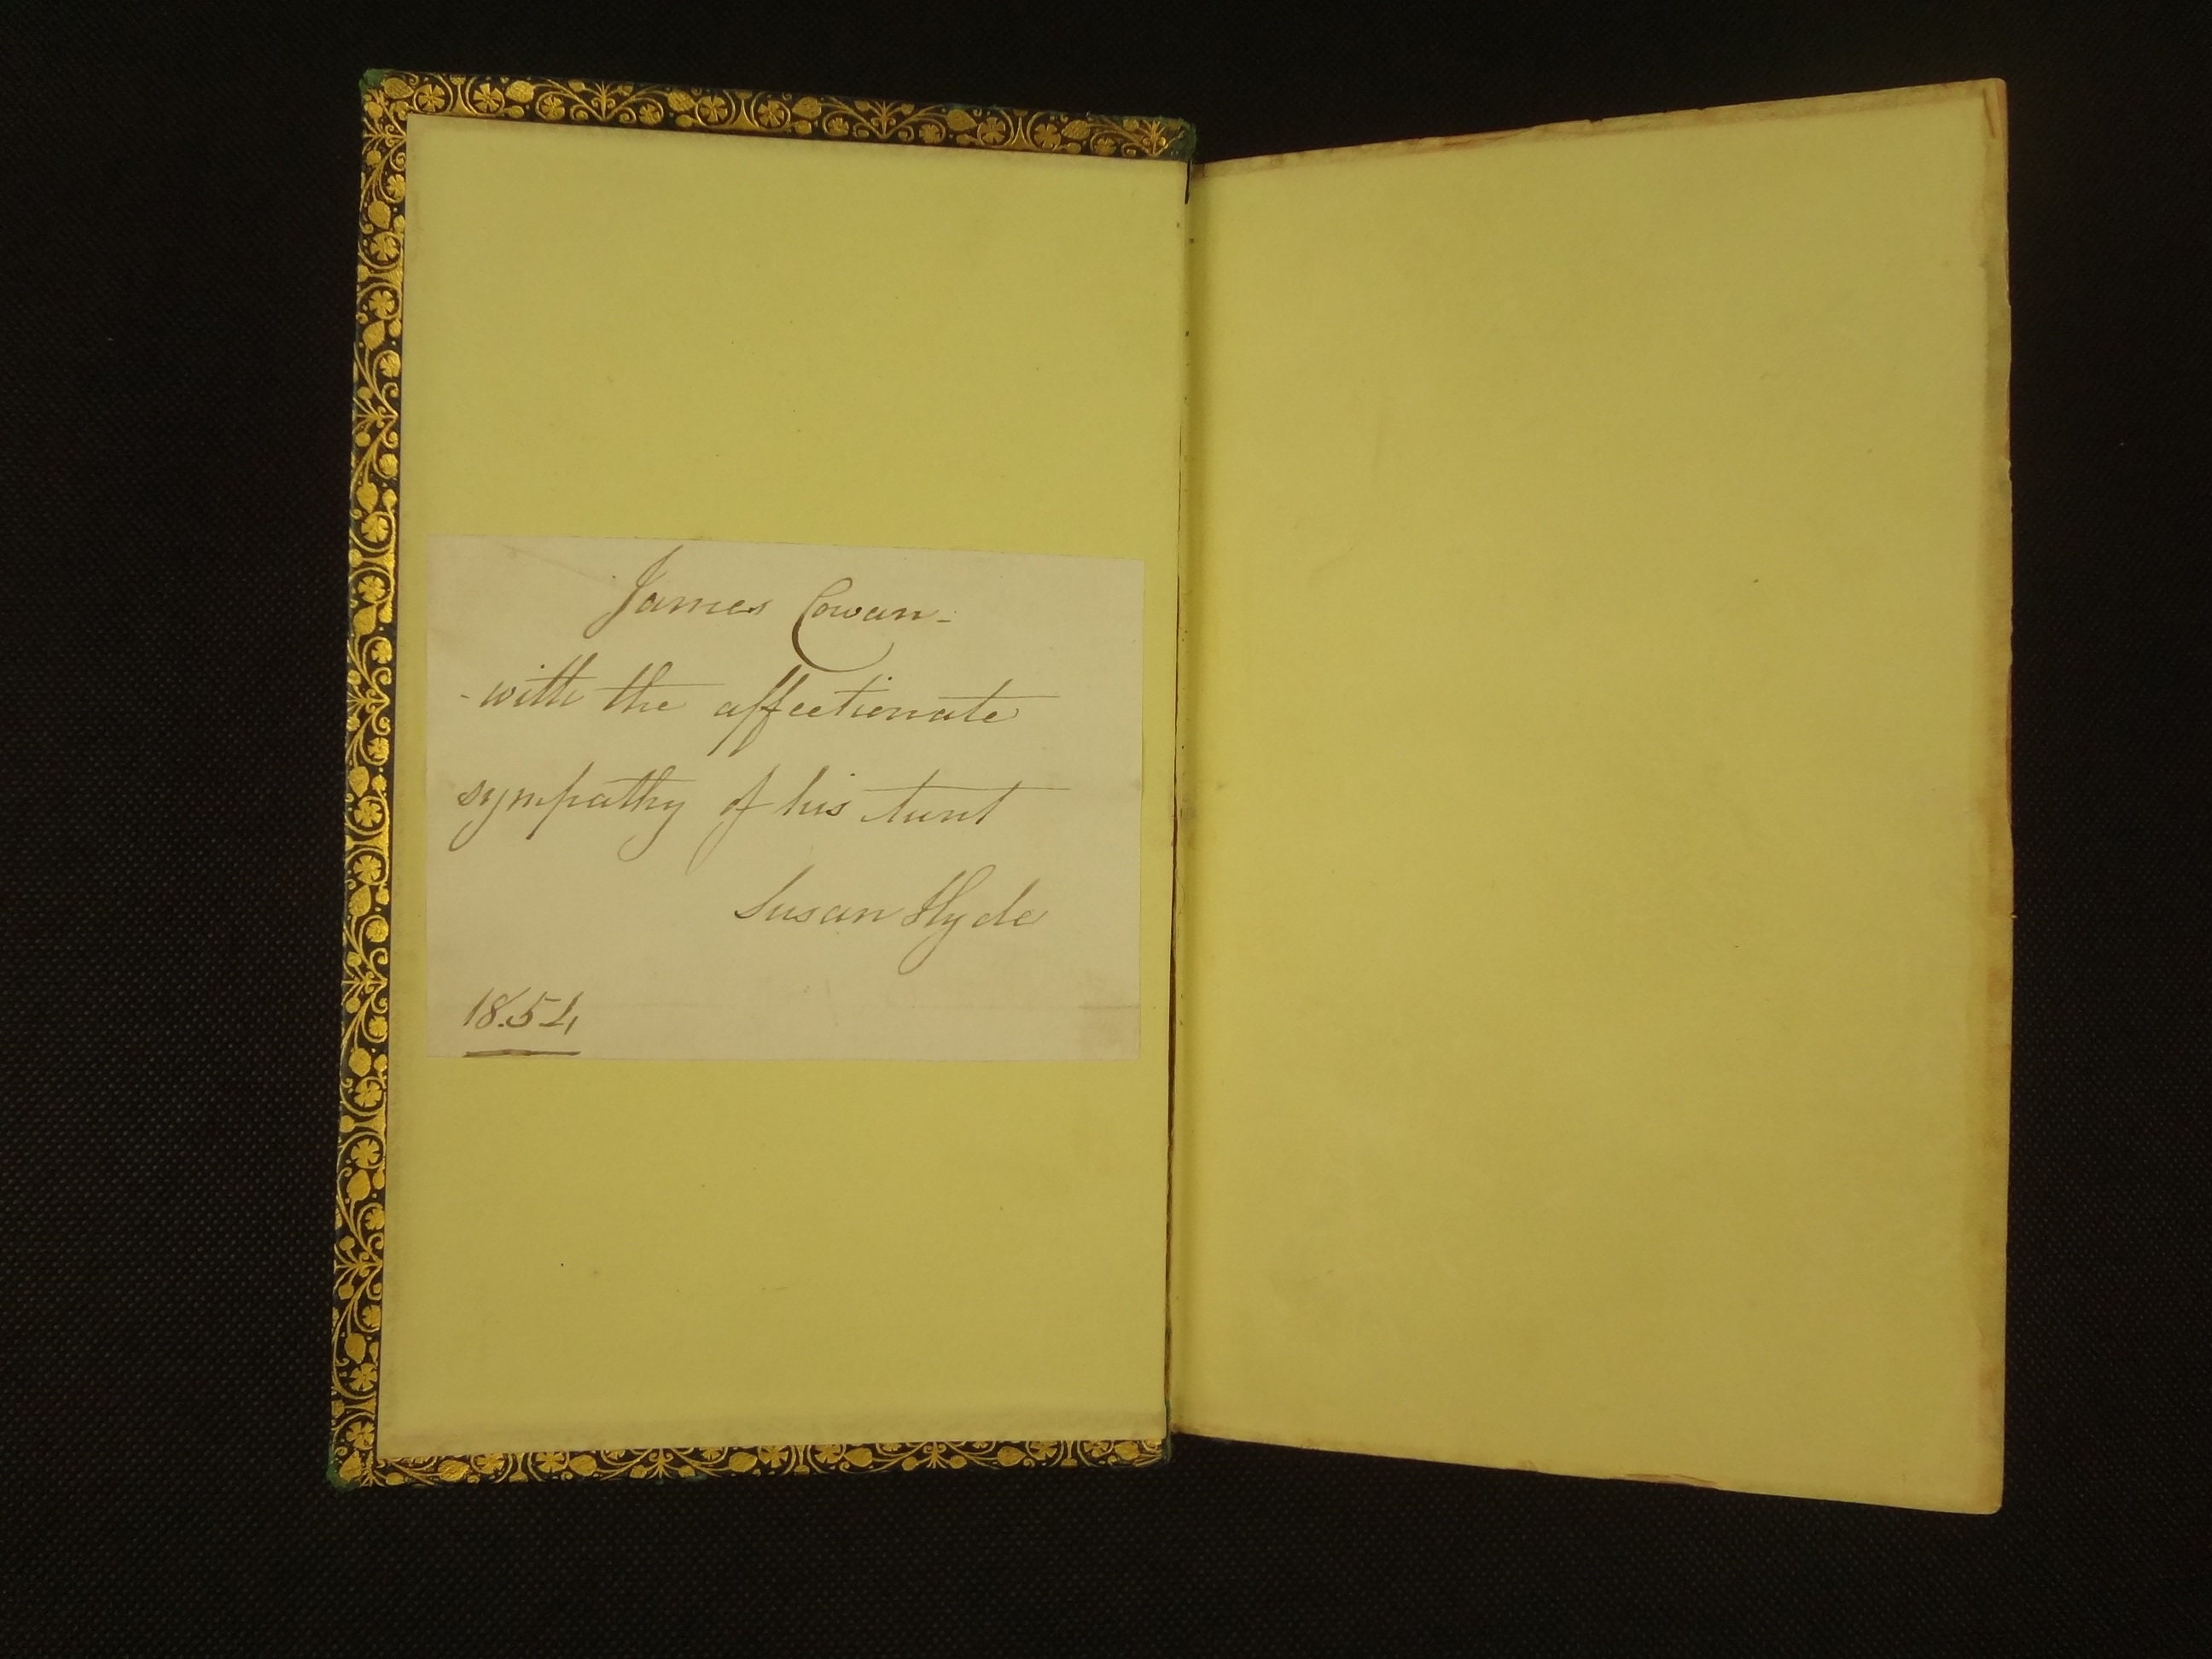 James Cowan -
- with the affectionate
sympathy of his Aunt
Susan Hyde
1854